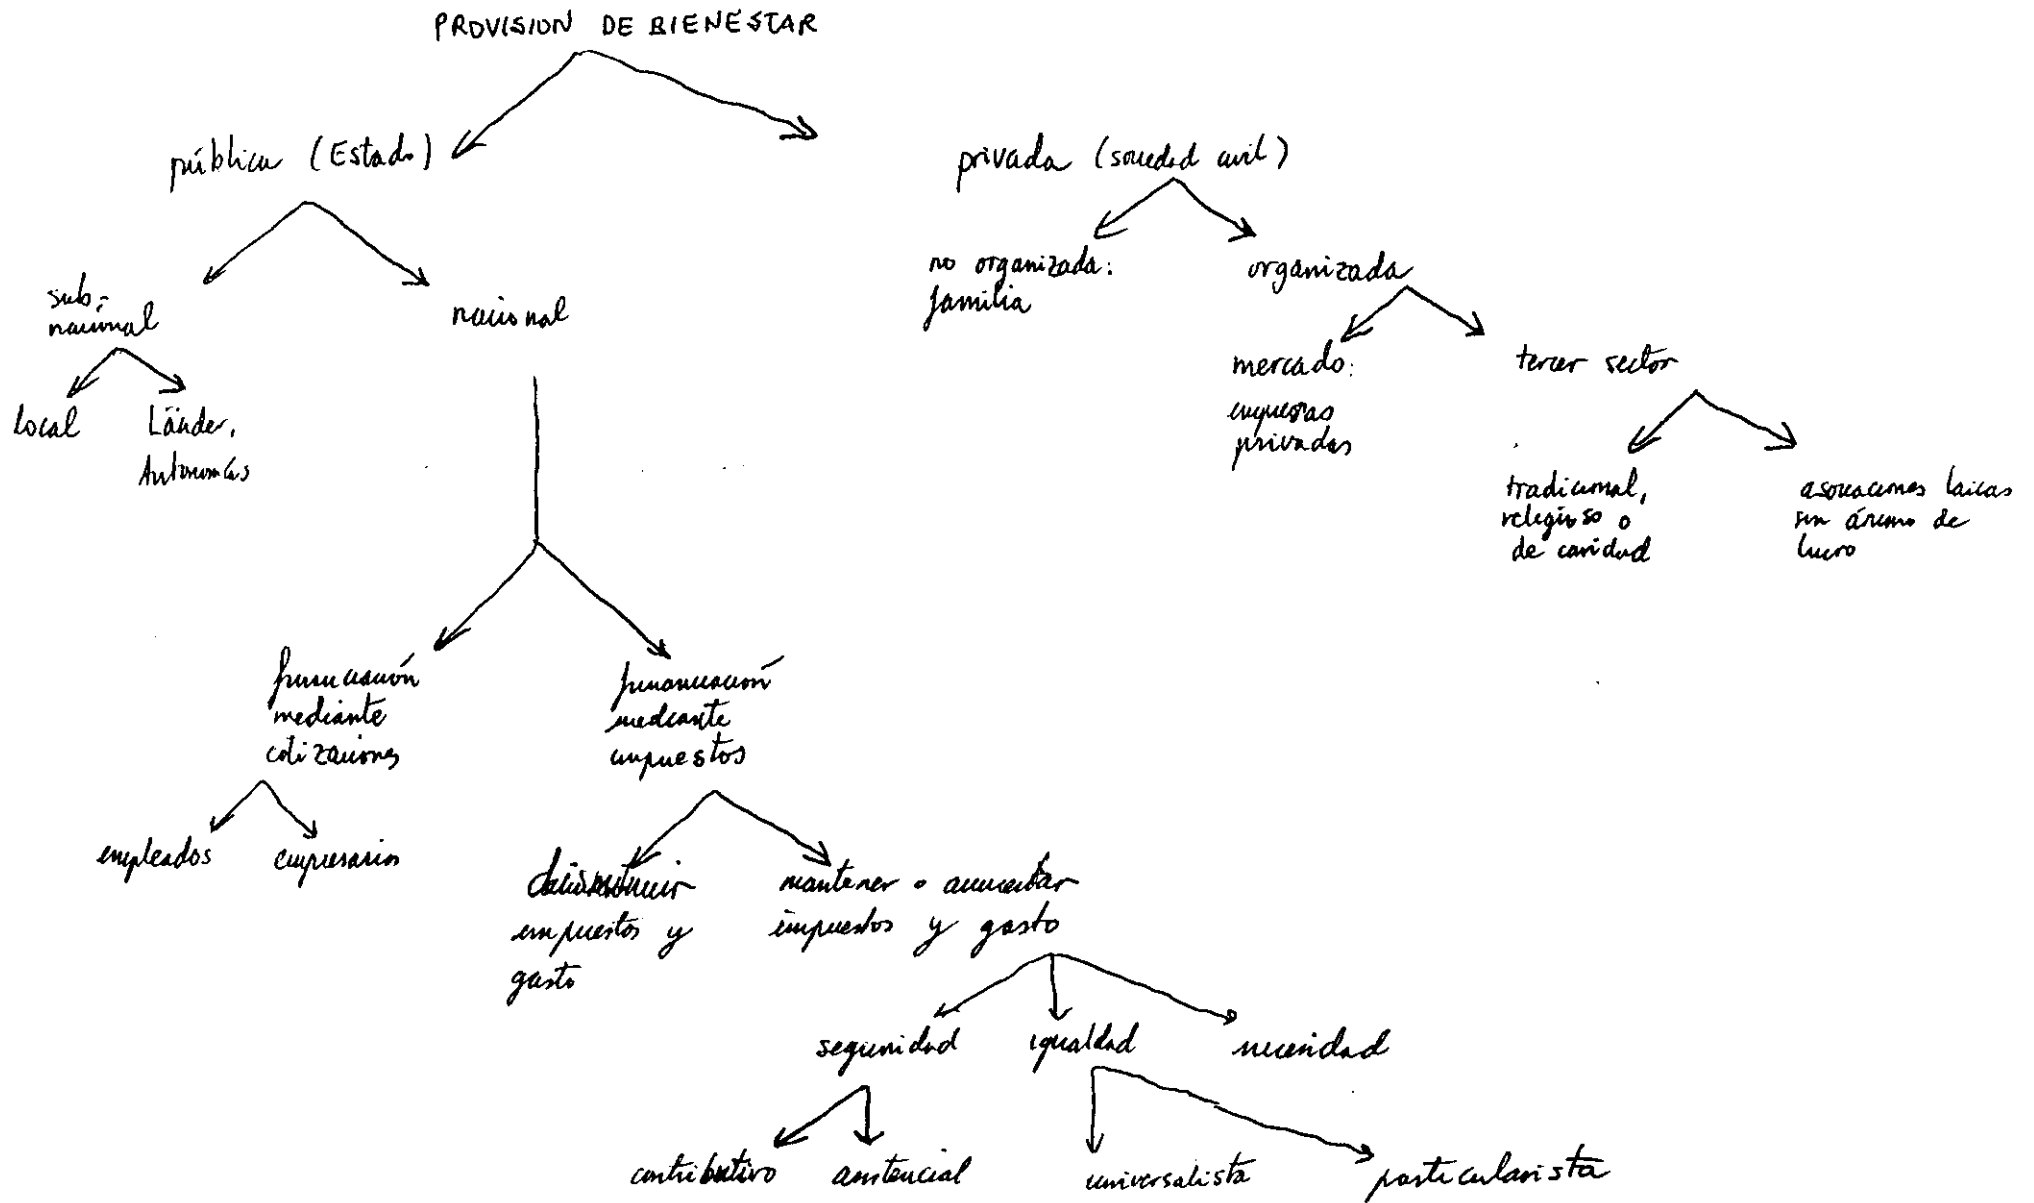 PROVISION DE BIENESTAR
pública (Estado)
privada (sociedad civil)
sub-
nacional
nacional
no organizada:
familia
organizada
local
Länder,
Autonomías
mercado:
empresas
privadas
tercer sector
tradicional,
religioso o
de caridad
asociaciones laicas
sin ánimo de
lucro
financiación
mediante
cotizaciones
financiación
mediante
impuestos
empleados
empresarios
disminuir
impuestos y
gasto
mantener o aumentar
impuestos y gasto
seguridad
igualdad
necesidad
contributivo
asistencial
universalista
particularista